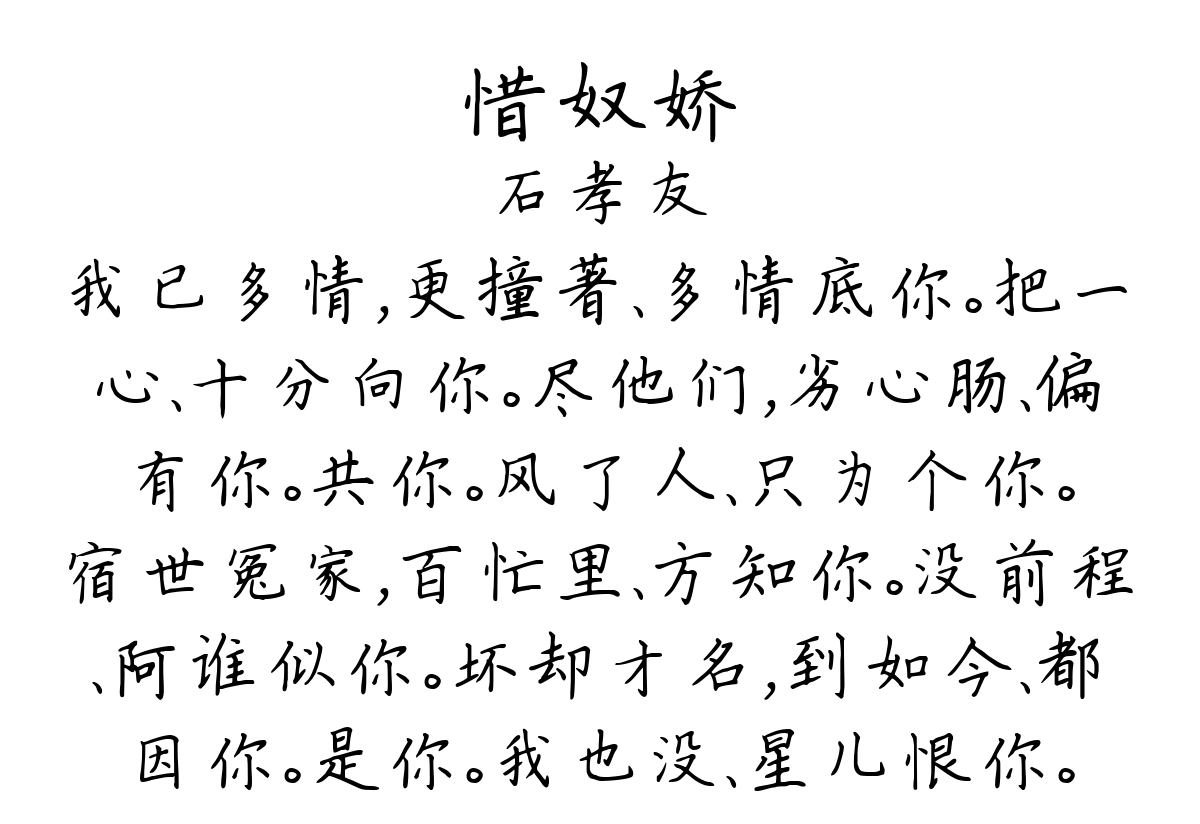 惜奴娇
石孝友
我已多情,更撞著、多情底你。把一
心、十分向你。尽他们,劣心肠、偏
有你。共你。风了人、只为个你。
宿世冤家,百忙里、方知你。没前程
、阿谁似你。坏却才名,到如今、都
因你。是你。我也没、星儿恨你。